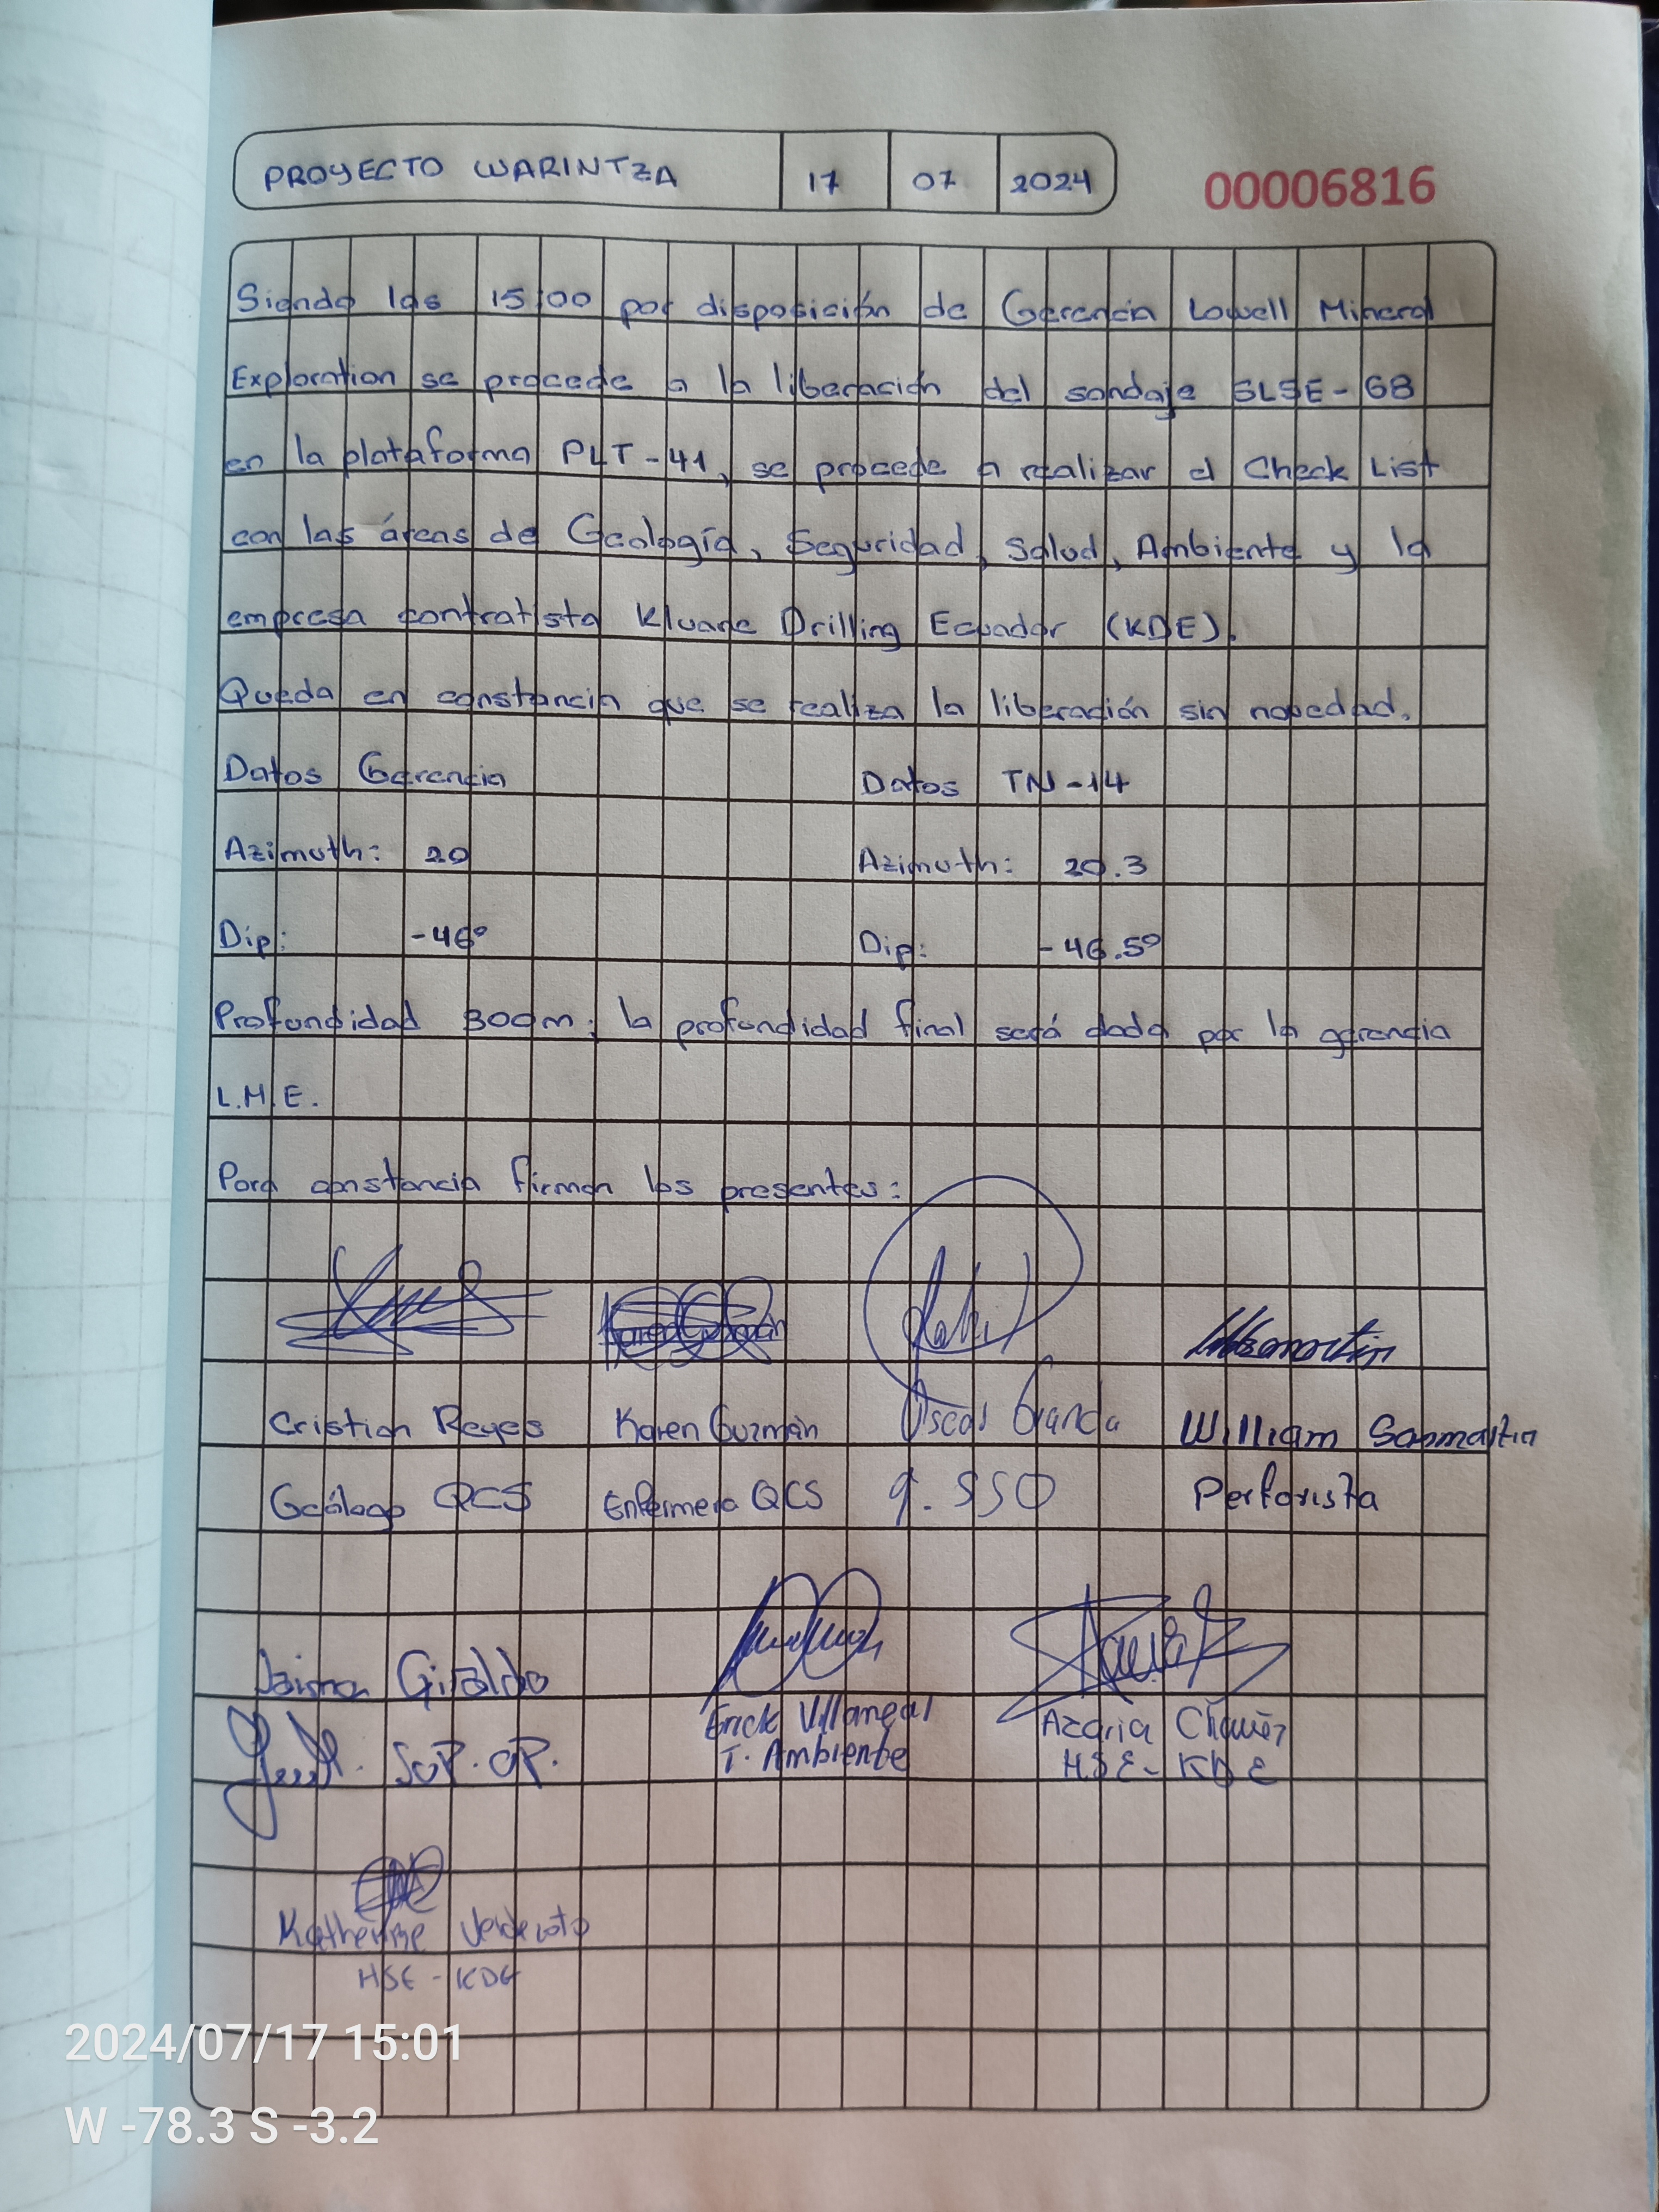 PROYECTO WARINTZA 17 07 2024 00006816
Siendo las 15:00 por disposición de Gerencia Lowell Mineral
Exploration se procede a la liberación del sondaje SLSE-68
en la plataforma PLT-41, se procede a realizar el Check List
con las áreas de Geología, Seguridad, Salud, Ambiente y la
empresa contratista Kluane Drilling Ecuador (KDE).
Queda en constancia que se realiza la liberación sin novedad.
Datos Gerencia Datos TN-14
Azimuth: 20 Azimuth: 20.3
Dip: -46° Dip: -46.5°
Profundidad 300m; la profundidad final será dada por la gerencia
L.M.E.
Para constancia firman los presentes:
Cristian Reyes Karen Guzmán Oscar Granda William Sanmartin
Geólogo QCS Enfermera QCS SSO Perforista
Giraldo
SUP. OP.
Erick Villareal
T. Ambiente
Azaria Chávez
HSE-KDE
Katherine
HSE-KDE
2024/07/17 15:01
W -78.3 S -3.2